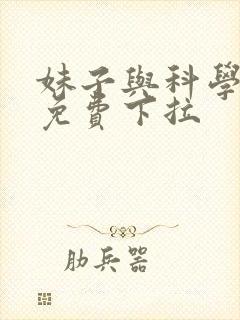 妹子與科學
免費下拉
肋兵器